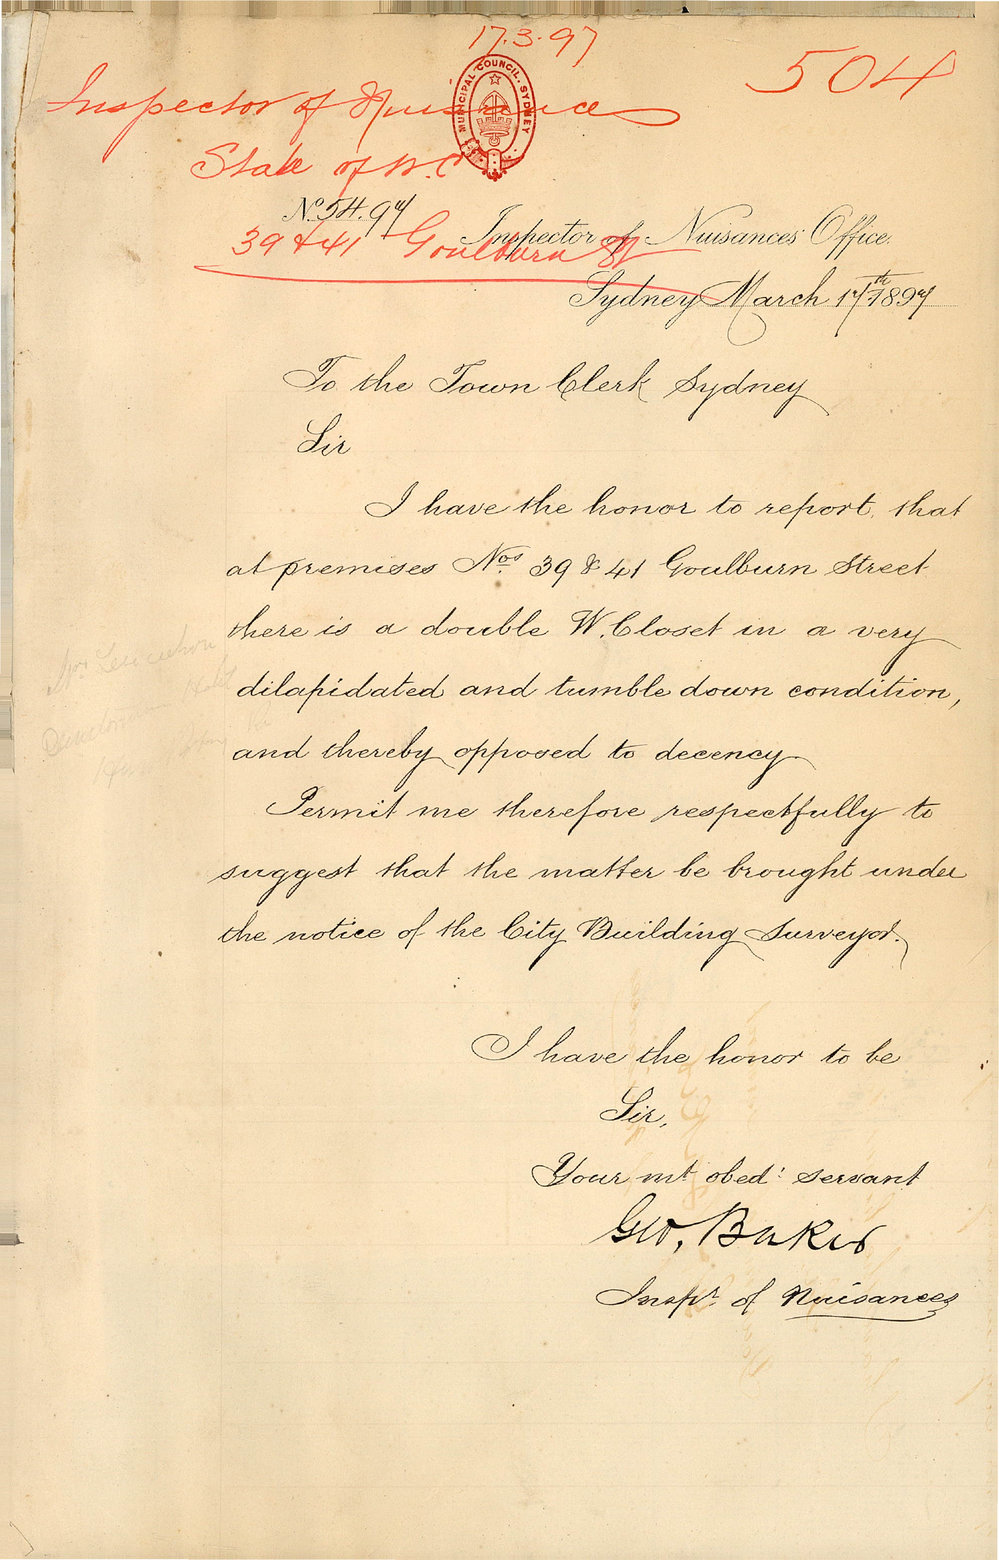 17.3.97
504
Inspector of Nuisances
MUNICIPAL COUNCIL. SYDNEY
State of W.C
No. 54.97
39 & 41 Goulburn St
Inspector of Nuisances Office.
Sydney March 17th 1897
To the Town Clerk Sydney
Sir
I have the honor to report that
at premises Nos 39 & 41 Goulburn Street
there is a double W. Closet in a very
dilapidated and tumble down condition,
and thereby opposed to decency
Permit me therefore respectfully to
suggest that the matter be brought under
the notice of the City Building Surveyor.
I have the honor to be
Sir,
Your mt obedt servant
Geo, Baker
Inspr of Nuisances